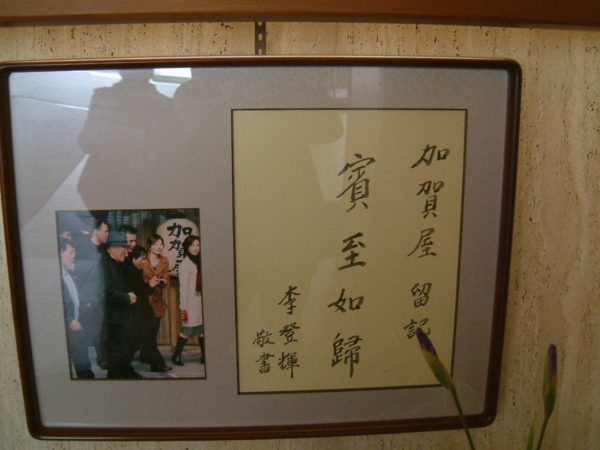 加賀屋留記
賓至如歸
李登輝
敬書
加賀屋